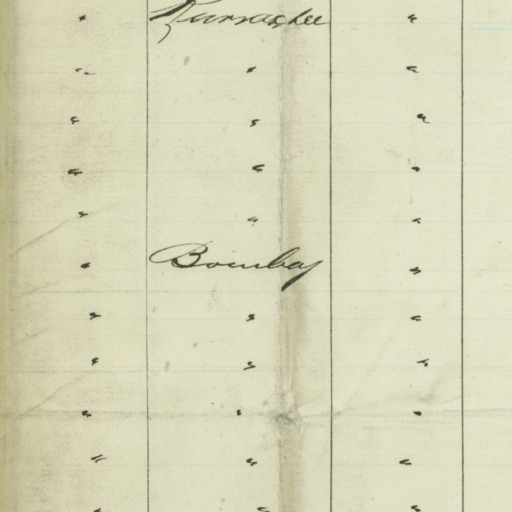 " Kurrachee "
" " "
" " "
" " "
" " "
" Bombay "
" " "
" " "
" " "
" " "
" " "